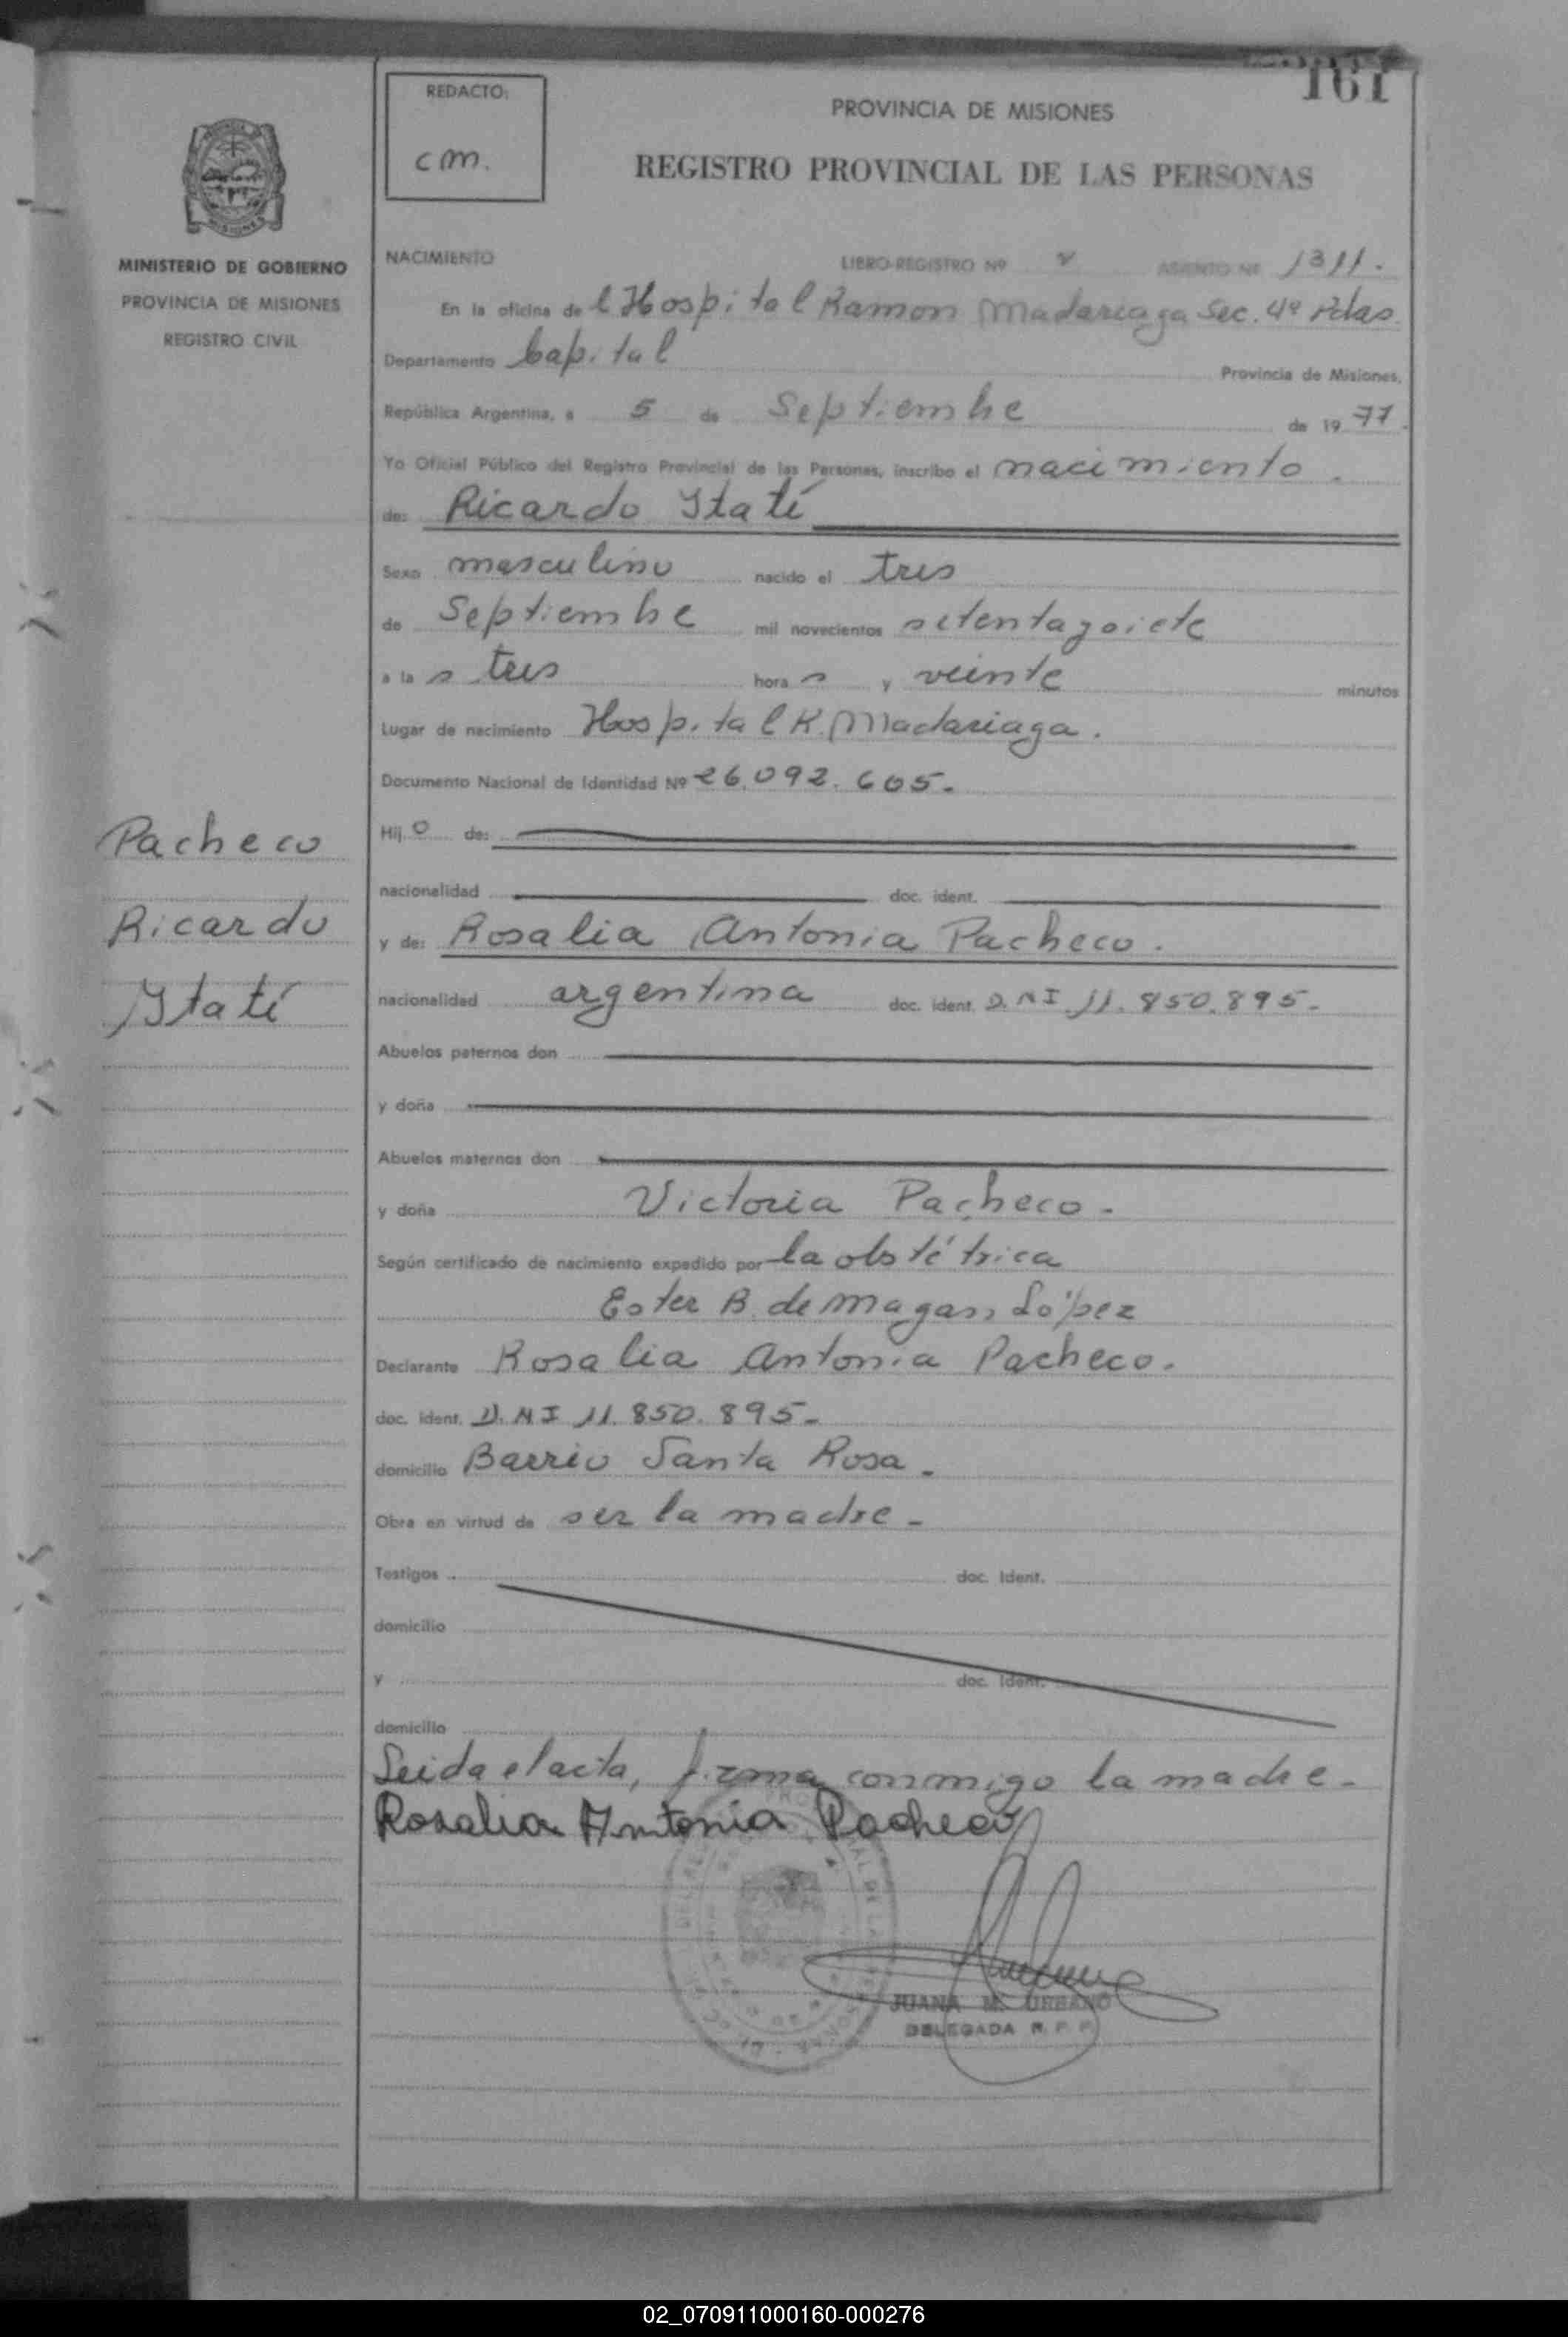 161
REDACTO:
cm.
PROVINCIA DE MISIONES
REGISTRO PROVINCIAL DE LAS PERSONAS
MINISTERIO DE GOBIERNO
PROVINCIA DE MISIONES
REGISTRO CIVIL
Pacheco
Ricardo
Itatí
NACIMIENTO LIBRO-REGISTRO Nº ASIENTO Nº 1311.
En la oficina de l Hospital Ramon Madariaga Sec. 4ª Pdas.
Departamento Capital Provincia de Misiones,
República Argentina, a 5 de Septiembre de 19 77.
Yo Oficial Público del Registro Provincial de las Personas, inscribo el nacimiento.
de: Ricardo Itatí
Sexo masculino nacido el tres
de Septiembre mil novecientos setentaysiete
a la s tres hora s y veinte minutos
Lugar de nacimiento Hospital R. Madariaga.
Documento Nacional de Identidad Nº 26.092.605.-
Hij o de:
nacionalidad doc. ident.
y de: Rosalia Antonia Pacheco.
nacionalidad argentina doc. ident. D.N.I 11.850.895.-
Abuelos paternos don
y doña
Abuelos maternos don
y doña Victoria Pacheco.-
Según certificado de nacimiento expedido por la obstétrica
Ester B. de Magan López
Declarante Rosalia Antonia Pacheco.
doc. ident. D.N.I 11.850.895.-
domicilio Barrio Santa Rosa.-
Obra en virtud de ser la madre.-
Testigos doc. Ident.
domicilio
y doc. Ident.
domicilio
Leida el acta, firma conmigo la madre.-
Rosalia Antonia Pacheco
JUANA M. URBANO
DELEGADA R. P. P.
02_070911000160-000276